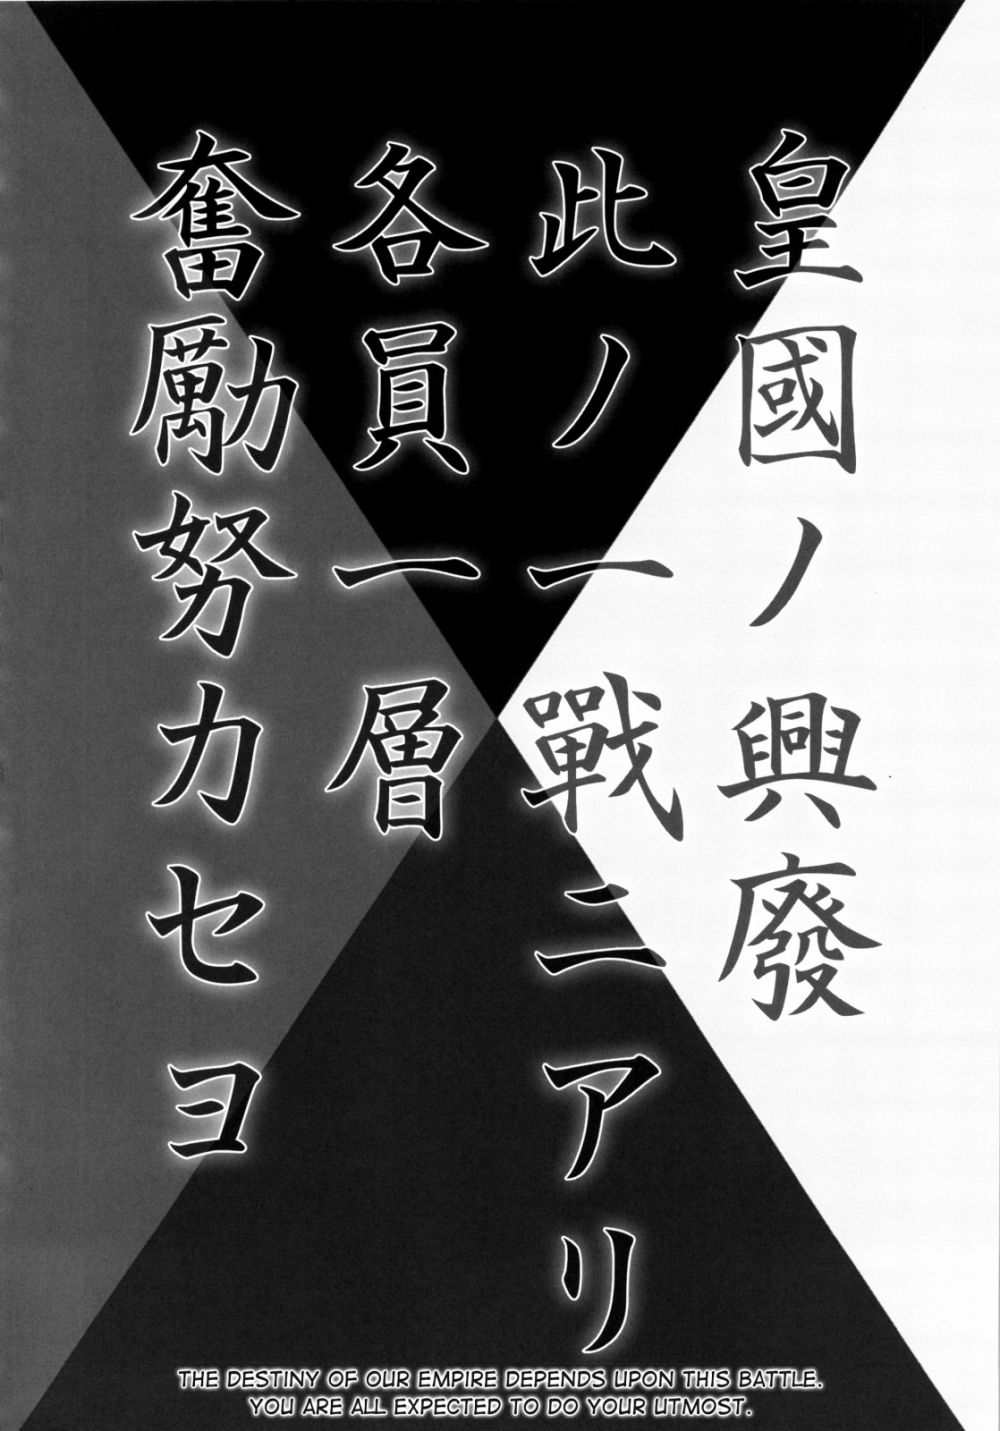 皇國ノ興廢
此ノ一戰ニアリ
各員一層
奮勵努力セヨ
THE DESTINY OF OUR EMPIRE DEPENDS UPON THIS BATTLE.
YOU ARE ALL EXPECTED TO DO YOUR UTMOST.